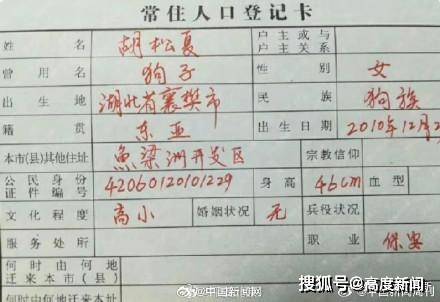 常住人口登记卡
姓名 胡松夏 户主或与户主关系
曾用名 狗子 性别 女
出生地 湖北省襄樊市 民族 狗族
籍贯 东亚 出生日期 2010年12月2
本市(县)其他住址 鱼梁洲开发区 宗教信仰
公民身份证件编号 42060120101229 身高 46cm 血型
文化程度 高小 婚姻状况 无 兵役状况
服务处所 职业 保安
何时由何地迁来本市(县)
何时由何地迁来本址
@中国新闻网
@中国新闻周刊
搜狐号@高度新闻